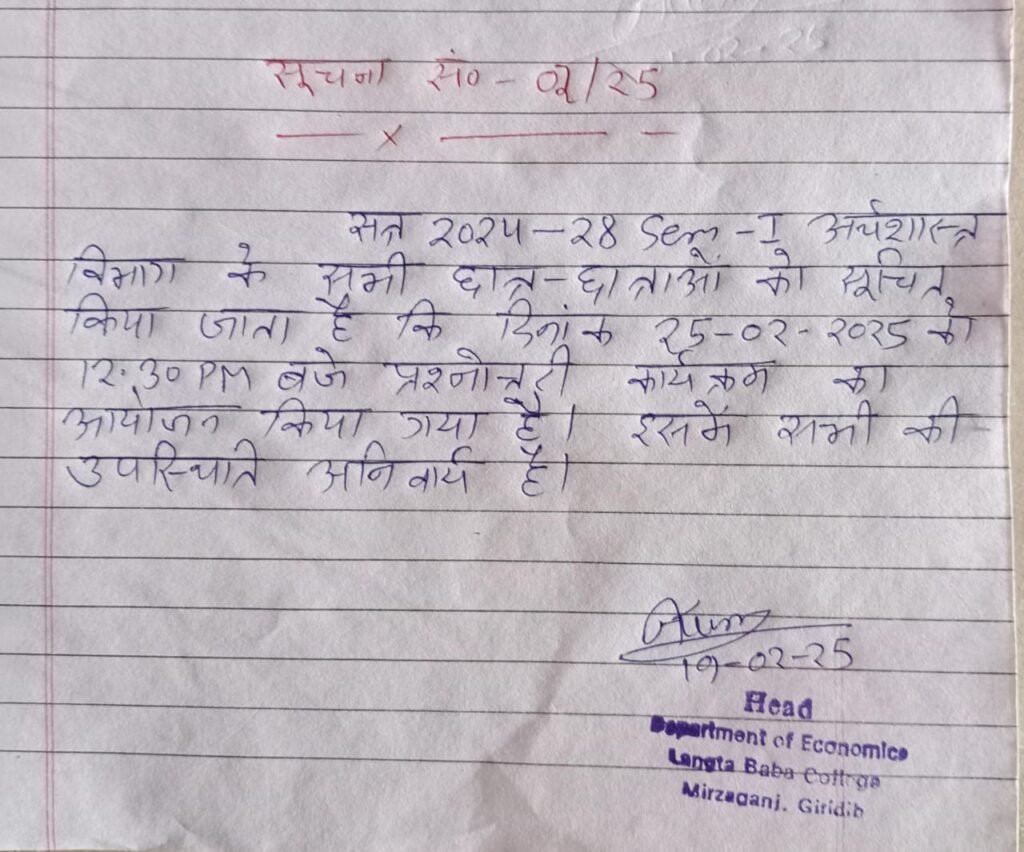 सूचना सं० - 02/25
सत्र 2024-28 Sem-I अर्थशास्त्र
विभाग के सभी छात्र-छात्राओं को सूचित
किया जाता है कि दिनांक 25-02-2025 को
12:30 PM बजे प्रश्नोत्तरी कार्यक्रम का
आयोजन किया गया है। इसमें सभी की
उपस्थिति अनिवार्य है।
19-02-25
Head
Department of Economics
Langta Baba College
Mirzaganj. Giridih